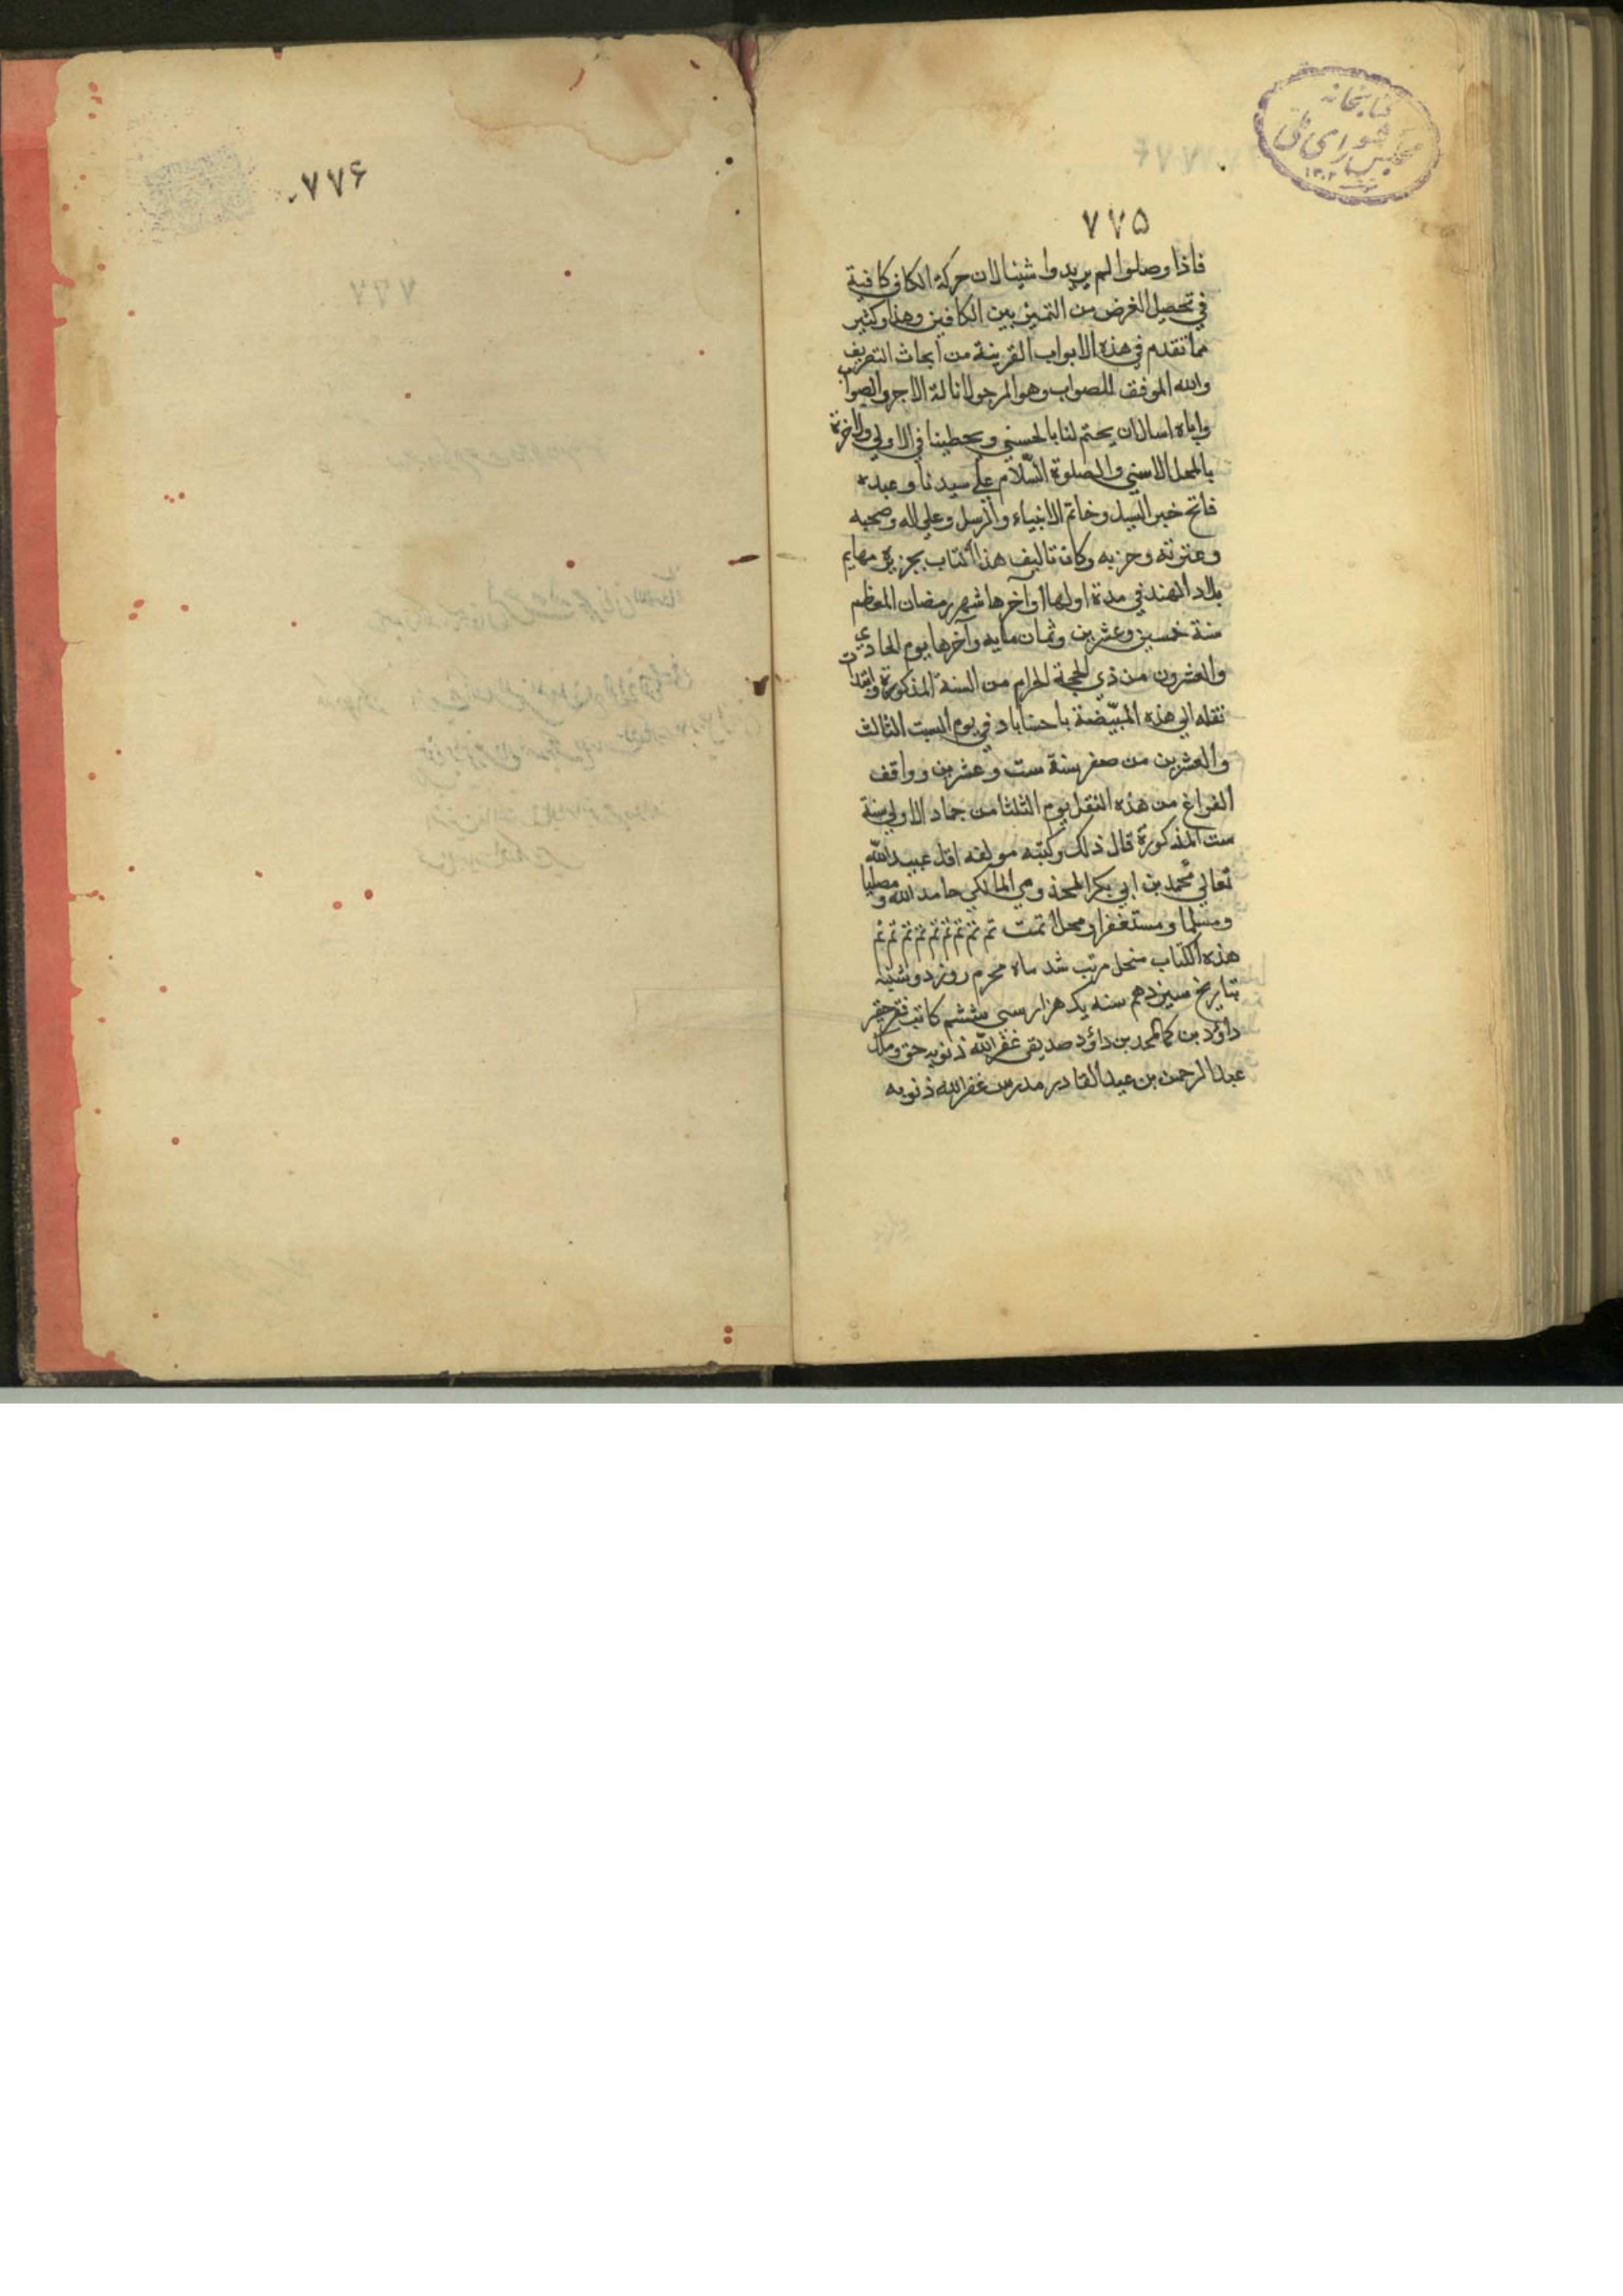 کتابخانه
مجلس شورای ملی
۱۳۰۲
۷۷۵
فاذا وصلوا لم يريدوا شيئا لان حركة الكاف كافية
في تحصيل الغرض من التميز بين الكافين وهذا وكثير
مما تقدم في هذه الابواب القريبة من ابحاث التصريف
والله الموفق للصواب وهو المرجو لانالة الاجر والصواب
واياه اسال ان يختم لنا بالحسني ويحطينا في الاولي والاخرة
بالمحل الاسني والصلوة السّلام علي سيدنا وعبده
فاتح خير السبل وخاتم الانبياء والرسل وعلي اله وصحبه
وعترته وحزبه وكان تاليف هذا الكتاب بجزيرة مهايم
بلاد الهند في مدة اولها اواخرها شهر رمضان المعظم
سنة خمس وعشرين وثمان مايه وآخرها يوم الحادي
والعشرون من ذي الحجة الحرام من السنة المذكورة وابتدات
نقله الي هذه المبيّضة باحساباد في يوم السبت الثالث
والعشرين من صفر سنة ست وعشرين وواقف
الفراغ من هذه النقل يوم الثلثا من جماد الاولي سنة
ست المذكورة قال ذلك وكتبه مولفه اقل عبيد الله
تعالي محمد بن ابي بكر المخذومي المالكي حامد الله ومصليا
ومسلما ومستغفرا ومحلا تمت تم تم تم تم تم تم تم تم تم
هذه الكتاب منحل مرتب شد ماه محرم روز دوشنبه
بتاريخ سيزدهم سنه يك هزار سى ششم كاتب فقير حقير
داؤد بن كمالمحمد بن داؤد صديقى غفر الله ذنوبه حق وملك
عبد الرحمن بن عبد القادر مدرس غفر الله ذنوبه
۷۷۶